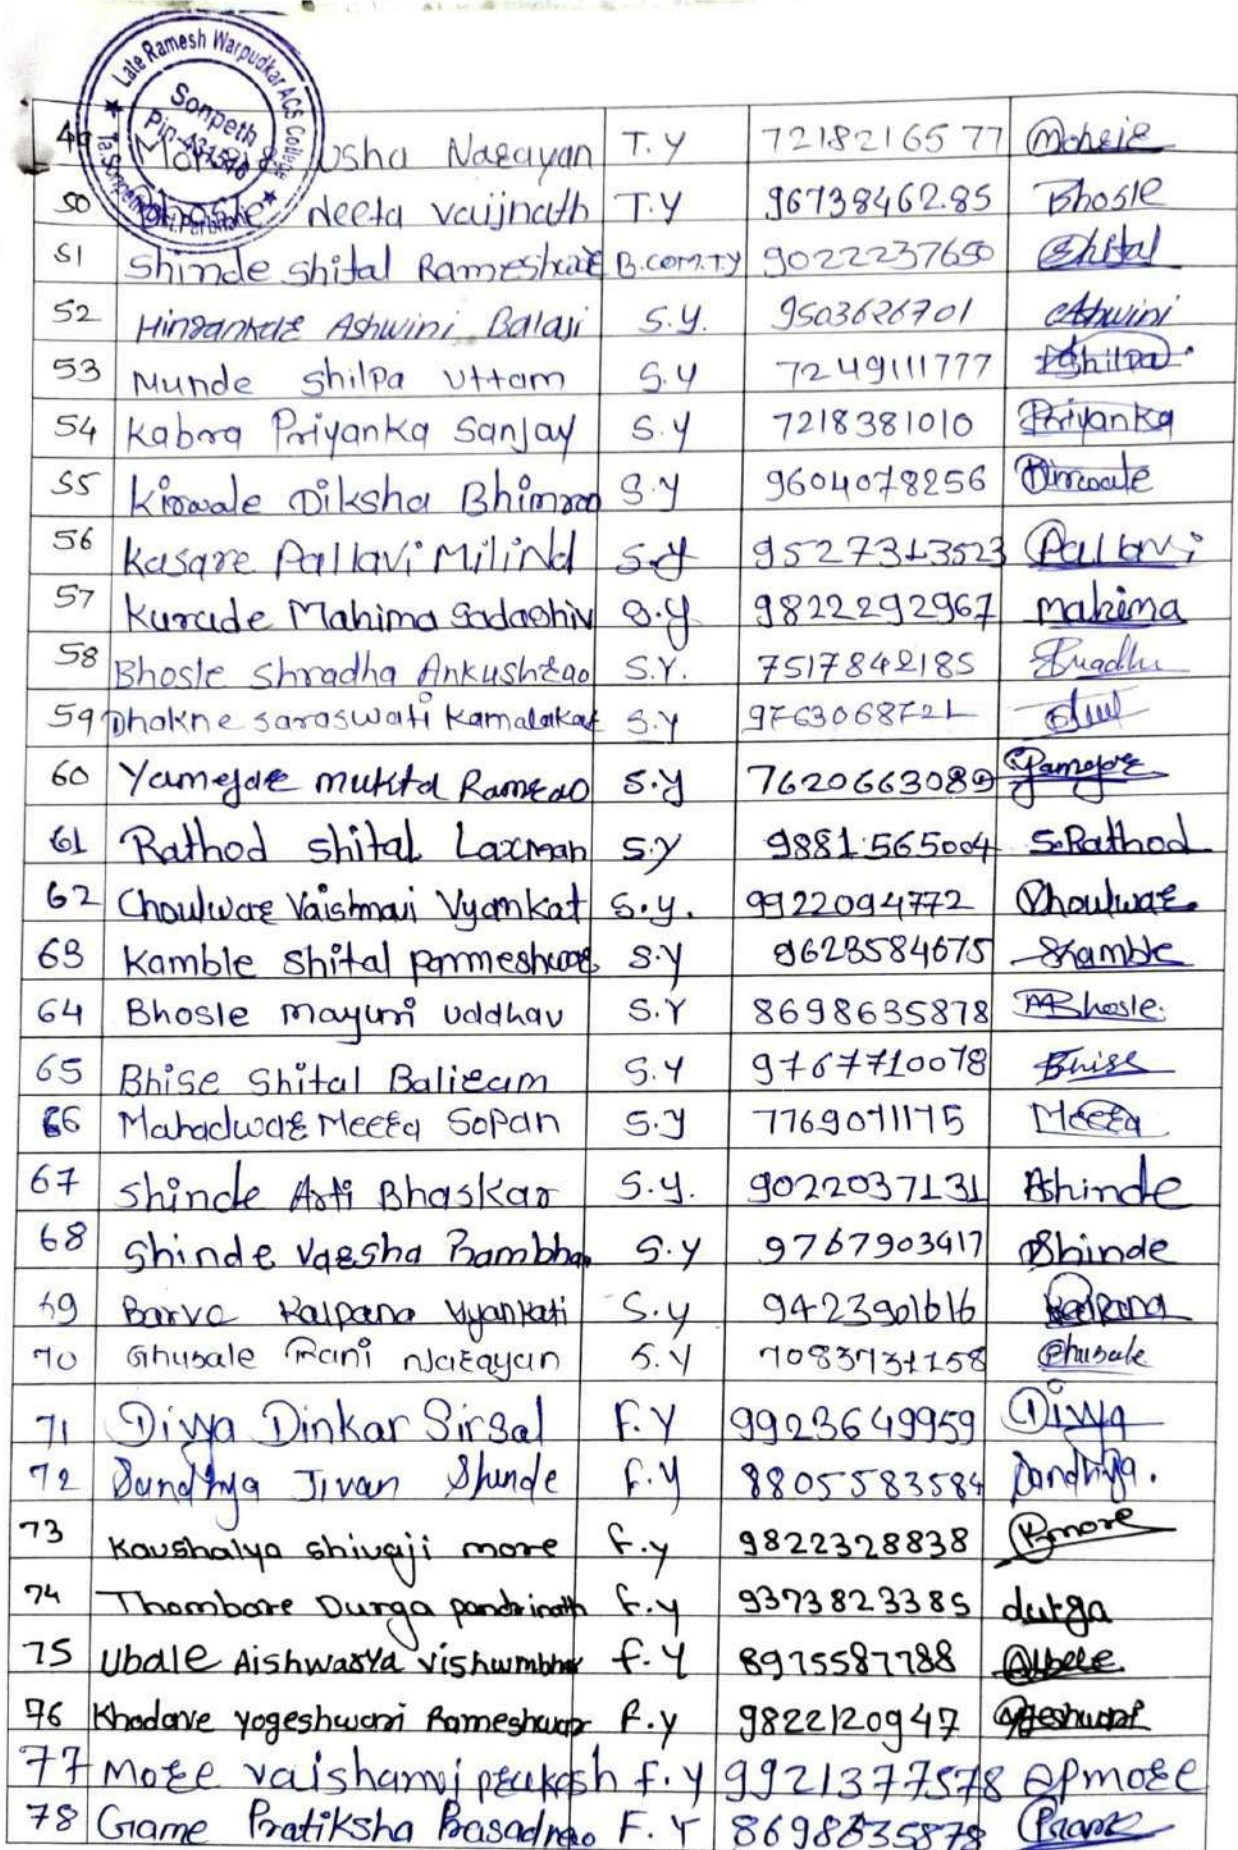 Late Ramesh Warpudkar ACS College
Sonpeth
Pin-431516
49 Usha Narayan T.Y 7218216577
50 Bhosle Neeta Vaijnath T.Y 9673846285 Bhosle
51 Shinde Shital Rameshwar B.com.TY 9022237650 Shital
52 Ashwini Balaji S.Y. 9503626701 Ashwini
53 Munde Shilpa Uttam S.Y 7249111777 Shilpa
54 Kabra Priyanka Sanjay S.Y 7218381010 Priyanka
55 Kirwale Diksha Bhimrao S.Y 9604078256
56 Kasare Pallavi Milind S.Y 9527313523 Pallavi
57 Kurude Mahima Sadashiv S.Y 9822292967 mahima
58 Bhosle Shradha Ankushrao S.Y. 7517842185
59 Dhakne Saraswati Kamalakar S.Y 9763068721
60 Yamejar Mukta Ramrao S.Y 7620663089
61 Rathod Shital Laxman S.Y 9881565004 S.Rathod
62 Choulwar Vaishnavi Vyankat S.Y. 9922094772 Choulwar
63 Kamble Shital Parmeshwar S.Y 9623584675 Skamble
64 Bhosle Mayuri Uddhav S.Y 8698635878 MBhosle.
65 Bhise Shital Baliram S.Y 9767710078 Bhise
66 Mahadwar Meera Sopan S.Y 7769071175 Meera
67 Shinde Arti Bhaskar S.Y. 9022037131 Ashinde
68 Shinde Varsha Rambhau S.Y 9767903417 Shinde
69 Barve Kalpana Vyankati S.Y 9423901616 Kalpana
70 Ghusale Rani Narayan S.Y 7083731158 Ghusale
71 Divya Dinkar Sirsal F.Y 9923649959 Divya
72 Sandhya Jivan Shinde F.Y 8805583584 Sandhya.
73 Kaushalya Shivaji more F.y 9822328838 Kmore
74 Thombare Durga pandrinath F.y 9373823385 durga
75 Ubale Aishwarya vishwmbhar F.Y 8975587788
76 Khodave yogeshwari Rameshwar F.y 9822120947
77 More vaishanvi prakash F.y 9921377578 pmore
78 Game Pratiksha Prasadrao F.Y 8698635878